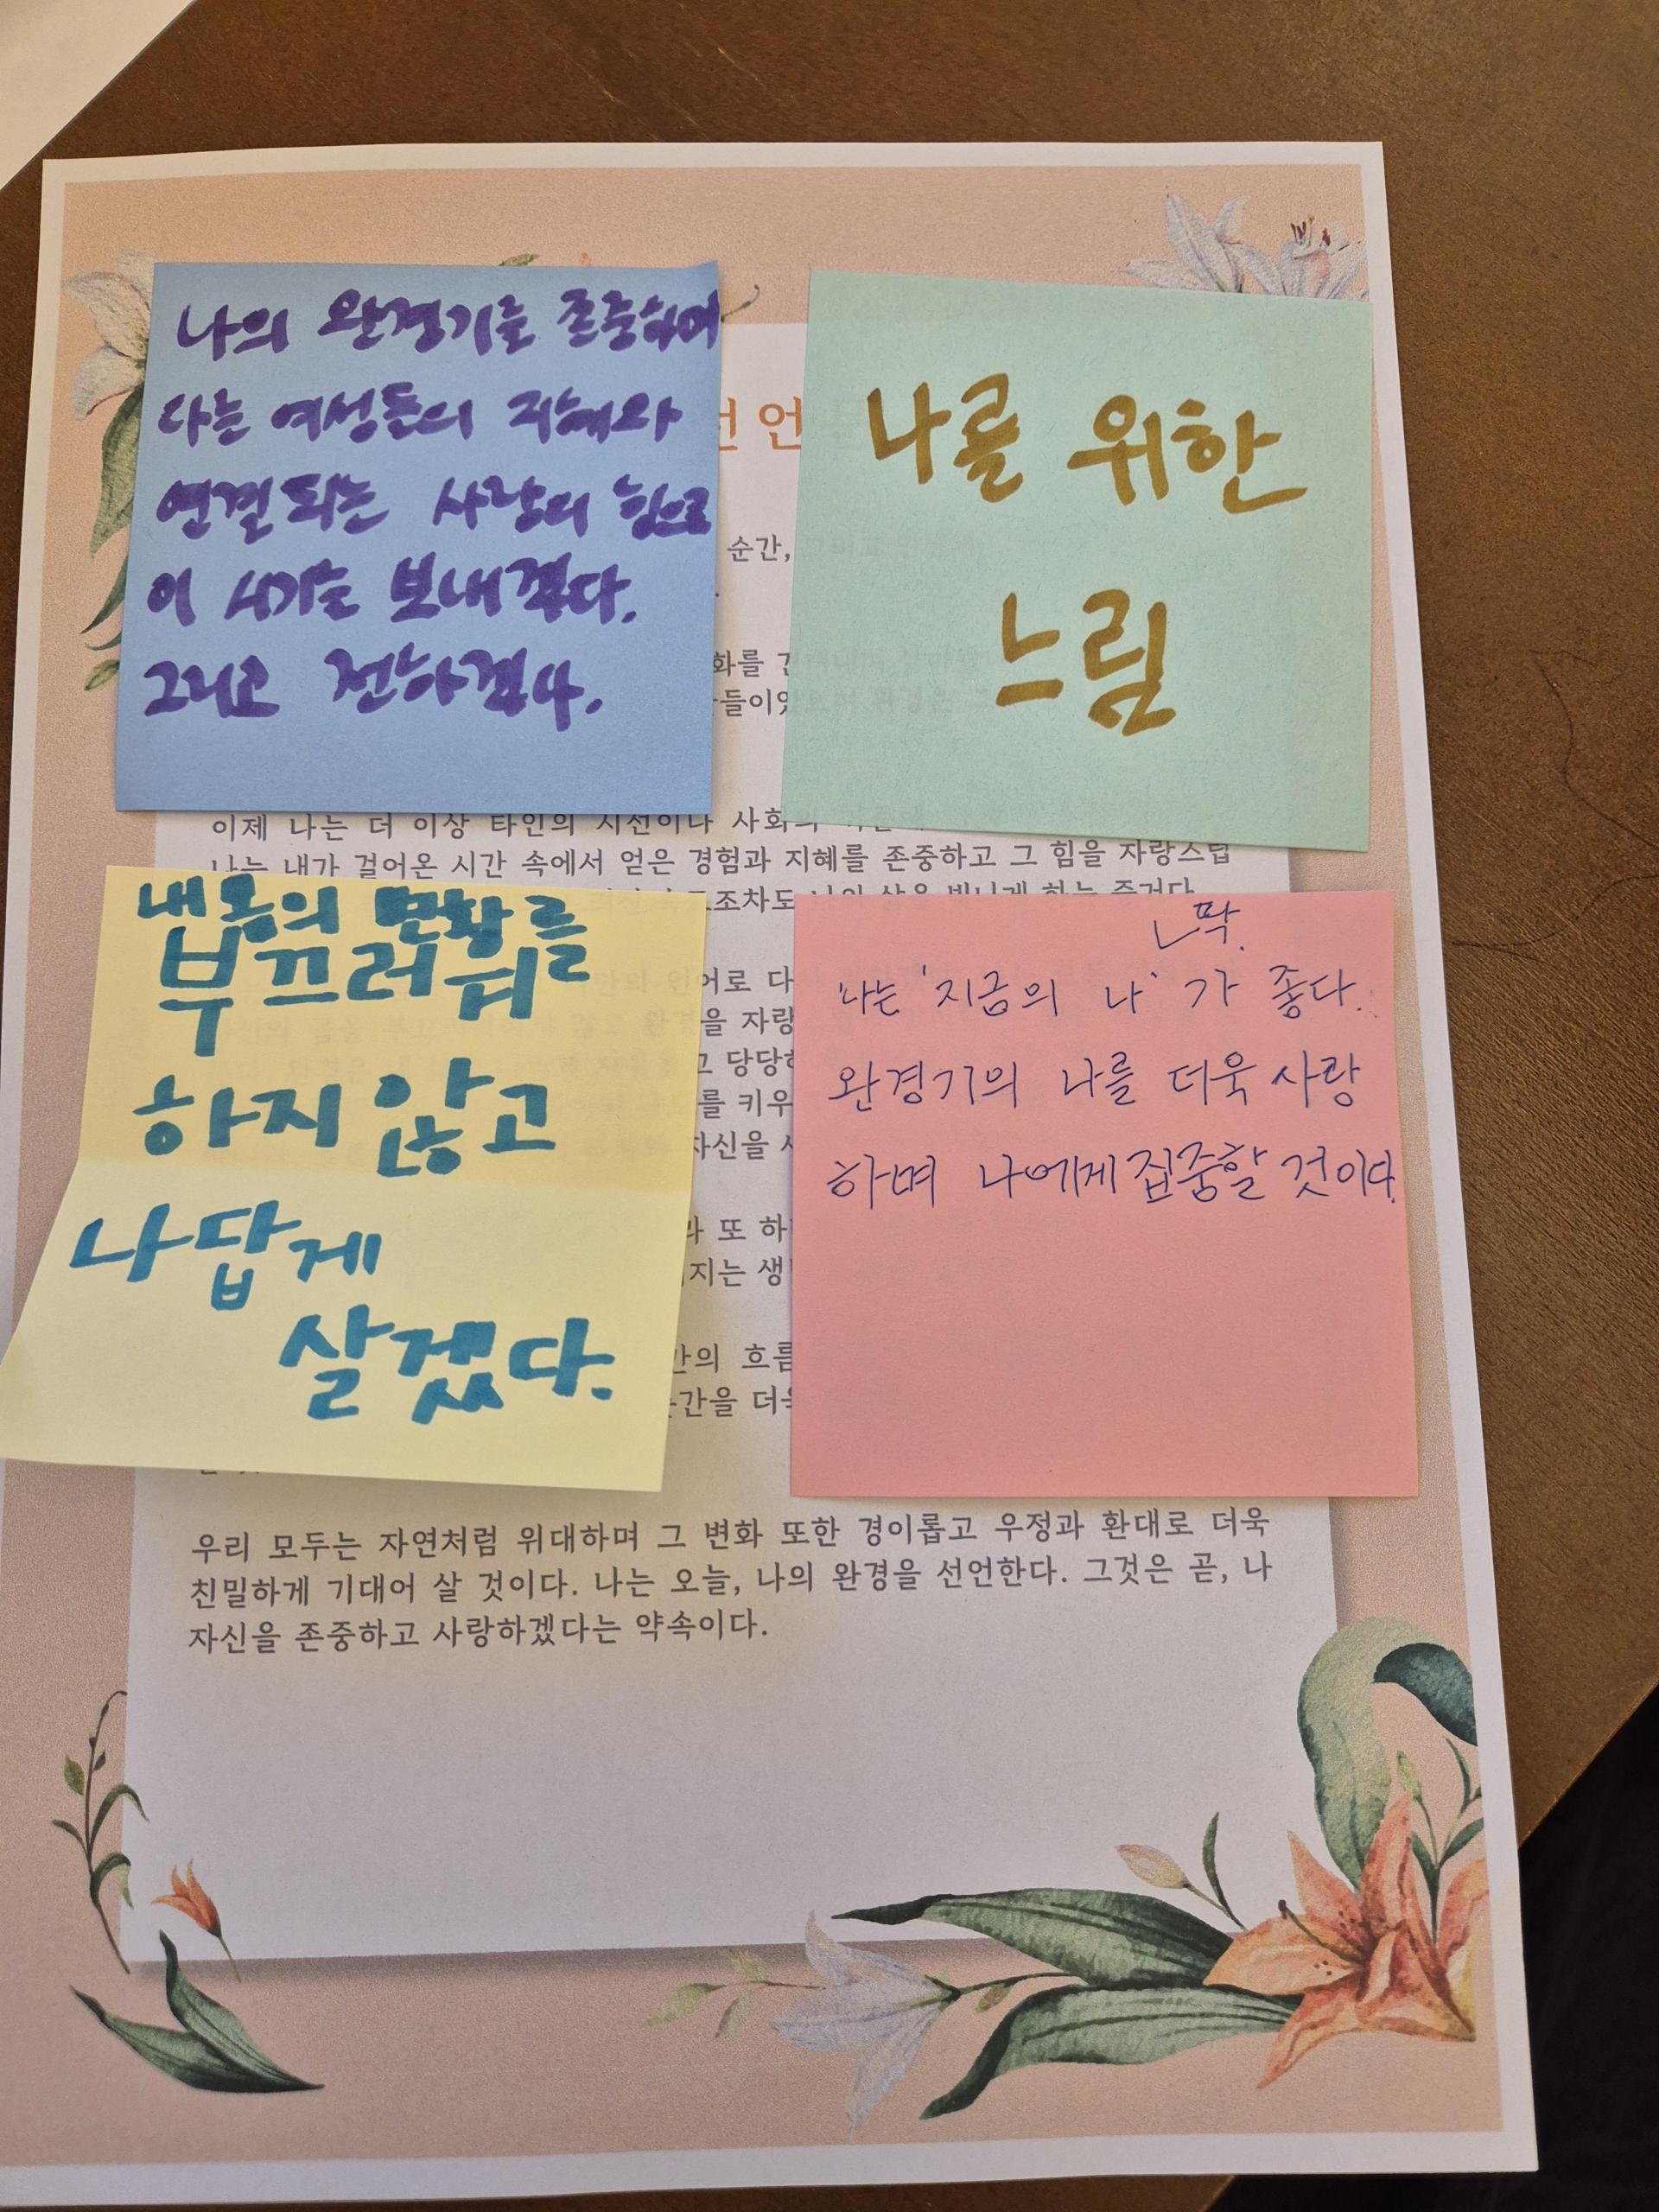 나의 완경기를 존중하며
다른 여성들의 지혜와
연결되는 사랑의 힘으로
이 시기를 보내겠다.
그리고 전하겠다.
나를 위한
느림
선언
순간,
화를
들이었
이제 나는 더 이상 타인의 시선이나 사회의 기준에
나는 내가 걸어온 시간 속에서 얻은 경험과 지혜를 존중하고 그 힘을 자랑스럽
조차도 나의 삶을 빛나게 하는 증거다
내몸의 변황를
부끄러워
하지 않고
나답게
살겠다.
딱.
나는 '지금의 나' 가 좋다.
완경기의 나를 더욱 사랑
하며 나에게 집중할 것이다.
만의 언어로 다
을 자랑
고 당당하
를 키우
자신을
또 하
지는 생
간의 흐름
순간을 더욱
우리 모두는 자연처럼 위대하며 그 변화 또한 경이롭고 우정과 환대로 더욱
친밀하게 기대어 살 것이다. 나는 오늘, 나의 완경을 선언한다. 그것은 곧, 나
자신을 존중하고 사랑하겠다는 약속이다.